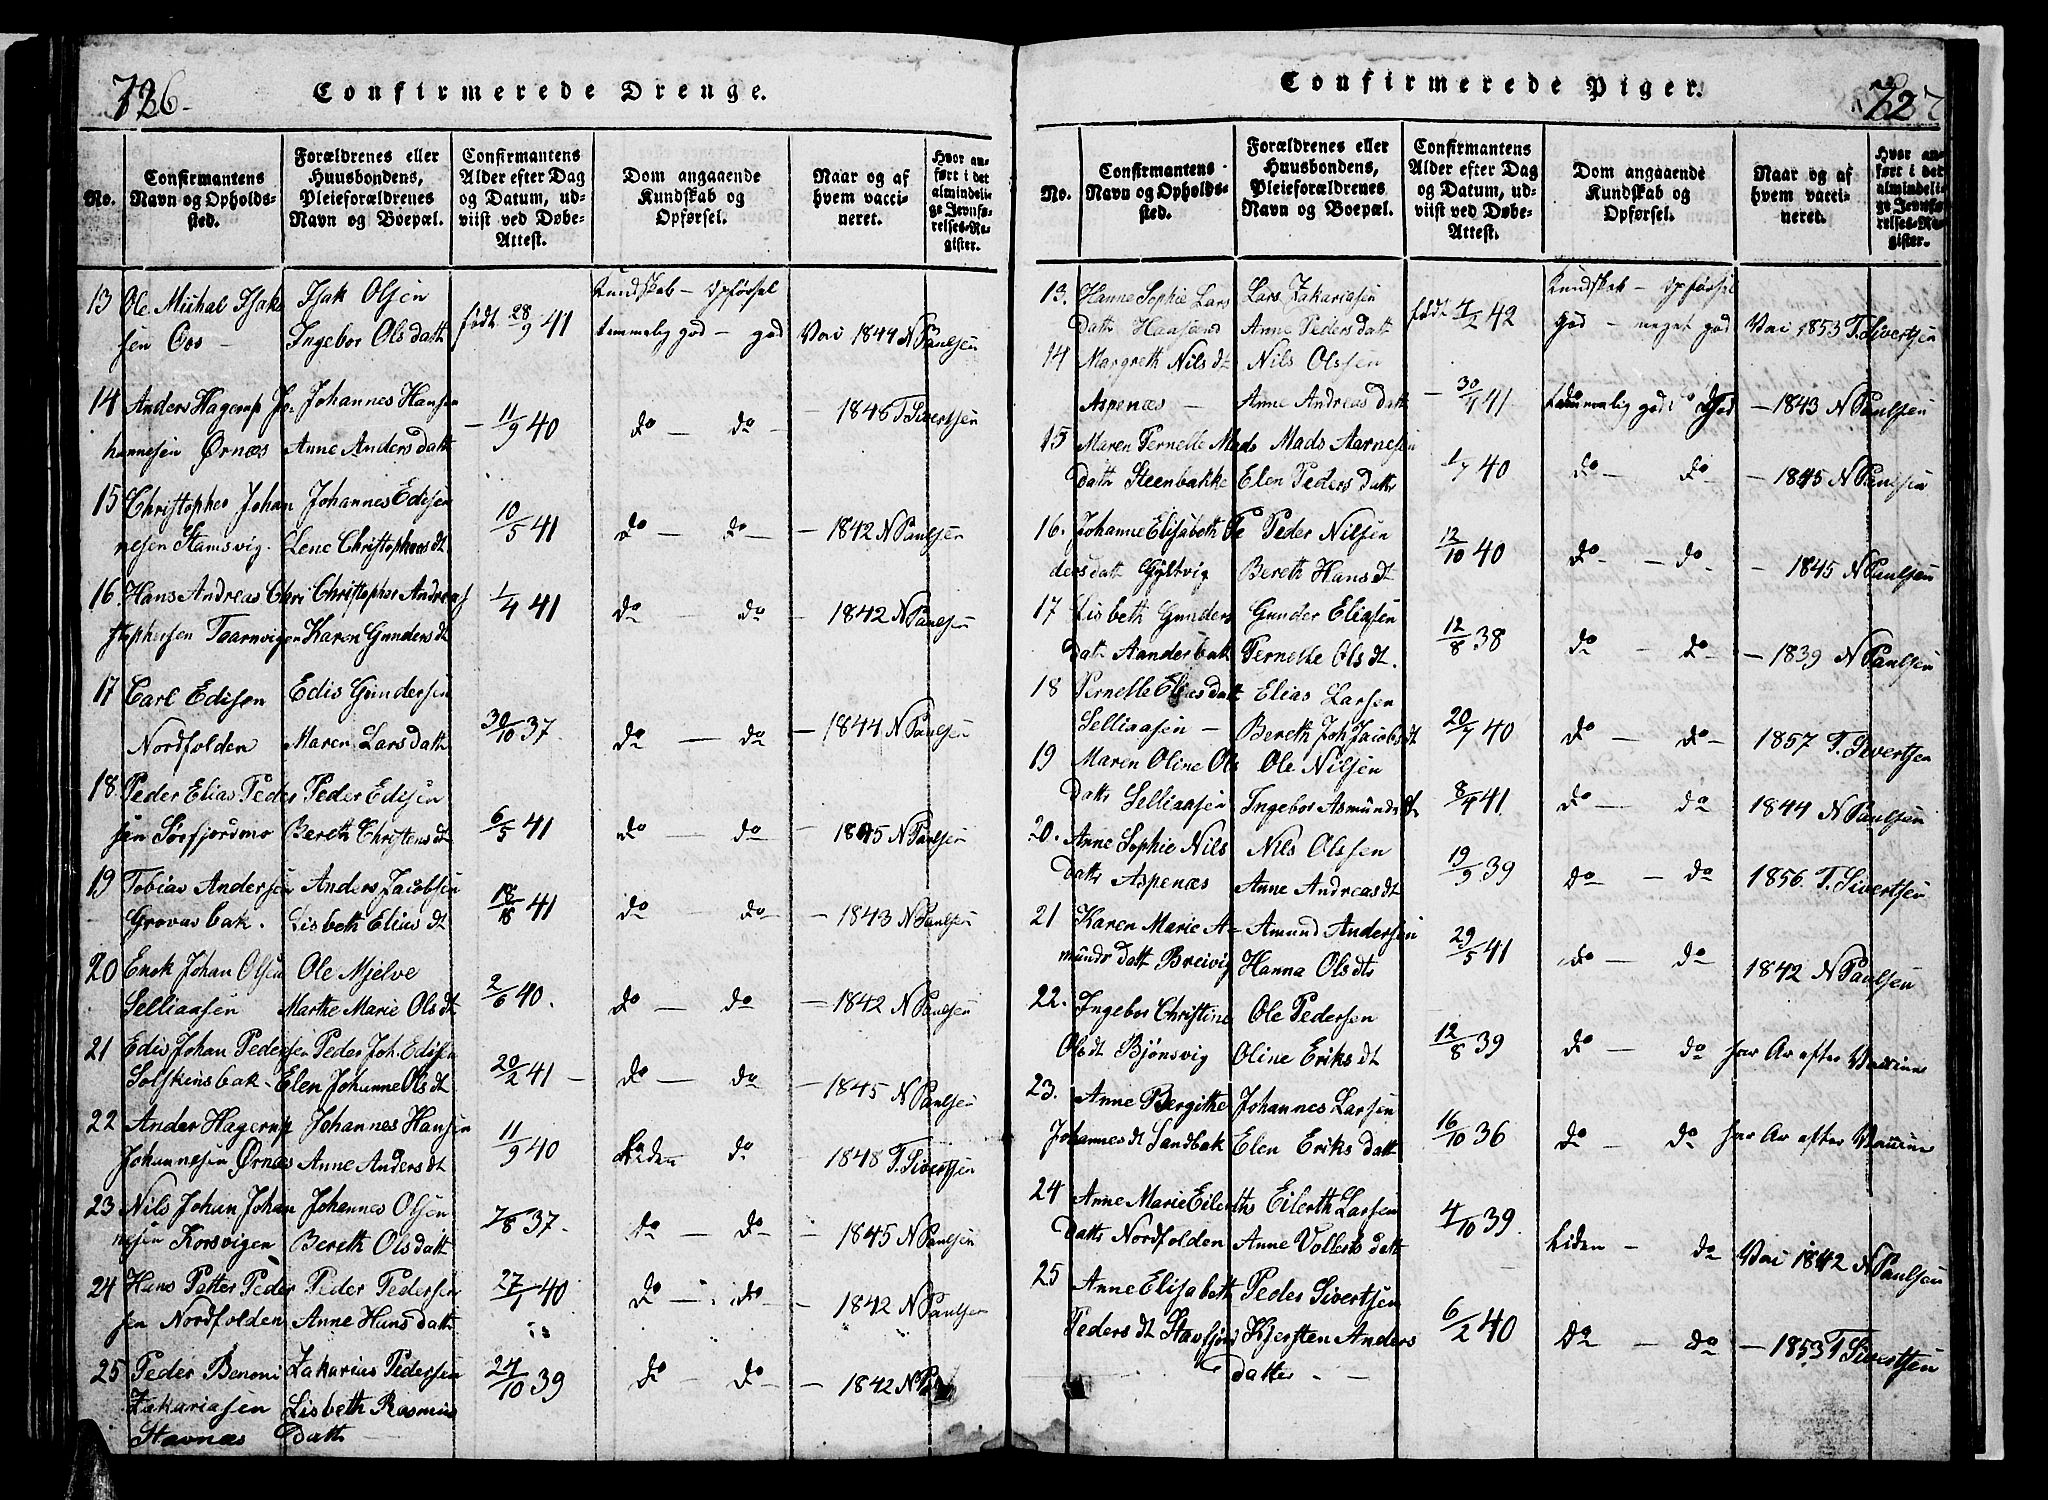 726
Confirmerede Drenge.
No.
Confirmantens Navn og Opholdssted.
Forældrenes eller Huusbondens, Pleieforældrenes Navn og Boepæl.
Confirmantens Alder efter Dag og Datum, udviist ved Døbe-Attest.
Dom angaaende Kundskab og Opførsel.
Naar og af hvem vaccineret.
Hvor anført i det almindelige Jevnførelses-Register.
13 Ole Michal Isak Isak Olsen Kundskab – Opførsel
sen Oos – Ingebor Olsdatt født 28/9 41 temmelig god – god Vai 1844 N Paulsen
14 Anders Hagerup Jo- Johannes Hansen
hannesen Ørnæs Anne Andersdatt – 11/9 40 do – do – – 1846 T. Sivertsen
15 Christopher Johan Johannes Edisen
nesen Stamsvig. Lene Christophersdt 10/5 41 do – do – – 1842 N Paulsen
16 Hans Andreas Chri Christopher Andreas
stophersen Taarnvigen Karen Gundersdt 1/4 41 do – do – 1842 N Paulsen
17 Carl Edisen Edis Gundersen
Nordfolden Maren Larsdatt 30/10 37. do – do – 1844 N Paulsen
18. Peder Elias Peder Peder Edisen
sen Sørfjordmo Bereth Christensdt 6/5 41 do – do – 1845 N Paulsen
19 Tobias Andersen Anders Jacobsen
Grovasbak. Lisbeth Eliasdt 41 do – do – – 1843 N Paulsen
20 Enok Johan Olsen Ole Mjelve
Selliaasen Marthe Marie Olsdt 2/6 40. do – do – 1842 N Paulsen
21 Edis Johan Pedersen Peder Joh. Edisen
Solskinsbak – Elen Johanne Olsdt 20/2 41 – do – do – 1845 N Paulsen
22 Ander Hagerup Johannes Hansen
Johannesen Ørnæs Anne Andersdt 11/9 40 Liden do – – 1848 T. Sivertsen
23 Nils Johan Johan Johannes Olsen
nesen Korsvigen Bereth Olsdatt 7/8 37. do – do – – 1845 N Paulsen
24 Hans Petter Peder Peder Pedersen
sen Nordfolden Anne Hansdatt 27/1 40 do – do – – 1842 N Paulsen
25 Peder Benoni Zakarias Pedersen
Zakariasen Lisbeth Rasmus 24/10 39 do – do – – 1842 N
Stavnæs datt
Confirmerede Piger.
727
No.
Confirmantens Navn og Opholdssted.
Forældrenes eller Huusbondens, Pleieforældrenes Navn og Boepæl.
Confirmantens Alder efter Dag og Datum, udviist ved Døbe-Attest.
Dom angaaende Kundskab og Opførsel.
Naar og af hvem vaccineret.
Hvor anført i det almindelige Jevnførelses-Register.
13. Hanne Sophie Lars Lars Zakariasen Kundskab – Opførsel
datt Hansand Anne Pedersdatt født 4/2 42 god – meget god Vai 1853 T. Sivertsen
14 Margreth Nilsdt Nils Olssen
Aspenæs – Anne Andreasdatt – 30/4 41 temmelig god do God – 1843 N Paulsen
15 Maren Pernelle Mads Mads Aarnesen
datt Steenbakke Elen Pedersdatt 1/7 40 do – do – – 1845 N Paulsen
16. Johanne Elisabeth Pe Peder Nilsen
dersdatt Gyltvig Bereth Hansdt 12/10 40 do – – do – – 1845 N Paulsen
17 Lisbeth Gunders Gunder Eliasen
datt Aanderbak Pernelle Olsdt. 12/8 38 do – do – – 1839 N Paulsen
18 Pernelle Eliasdatt Elias Larsen
Selliaasen – Bereth Joh Jacobsdt 20/7 40 do – do – 1857 T. Sivertsen
19 Maren Oline Ols Ole Nilsen
datt Selliaasen Ingebor Asmundsdt 8/4 41. do – do 1844 N Paulsen
20. Anne Sophie Nils Nils Olssen
datt Aspenæs Anne Andreasdt 19/9 39 do – do 1856. T. Sivertsen
21 Karen Marie A- Amund Andersen
mundsdatt Breivig Hanna Olsdt 29/5 41 do – do 1842 N Paulsen
22. Ingebor Christine Ole Pedersen
Olsdt Bjønsvig Oline Eriksdt 12/8 39 do – do har Ar efter Vaccine
23. Anne Bergithe Johannes Larsen
Johannesdt Sandbak Elen Eriksdatt 16/10 36 do – do har Ar efter Vaccine
24 Anne Marie Eilerths Eilerth Larsen
datt Nordfolden Anne Vollertsdatt 4/10 39. Liden – do Vai 1842 N Paulsen
25 Anne Elisabeth Peder Sivertsen
Pedersdt Stavfjord Kjersten Anders 6/2 40 do – do – 1853 T Sivertsen
datter – –